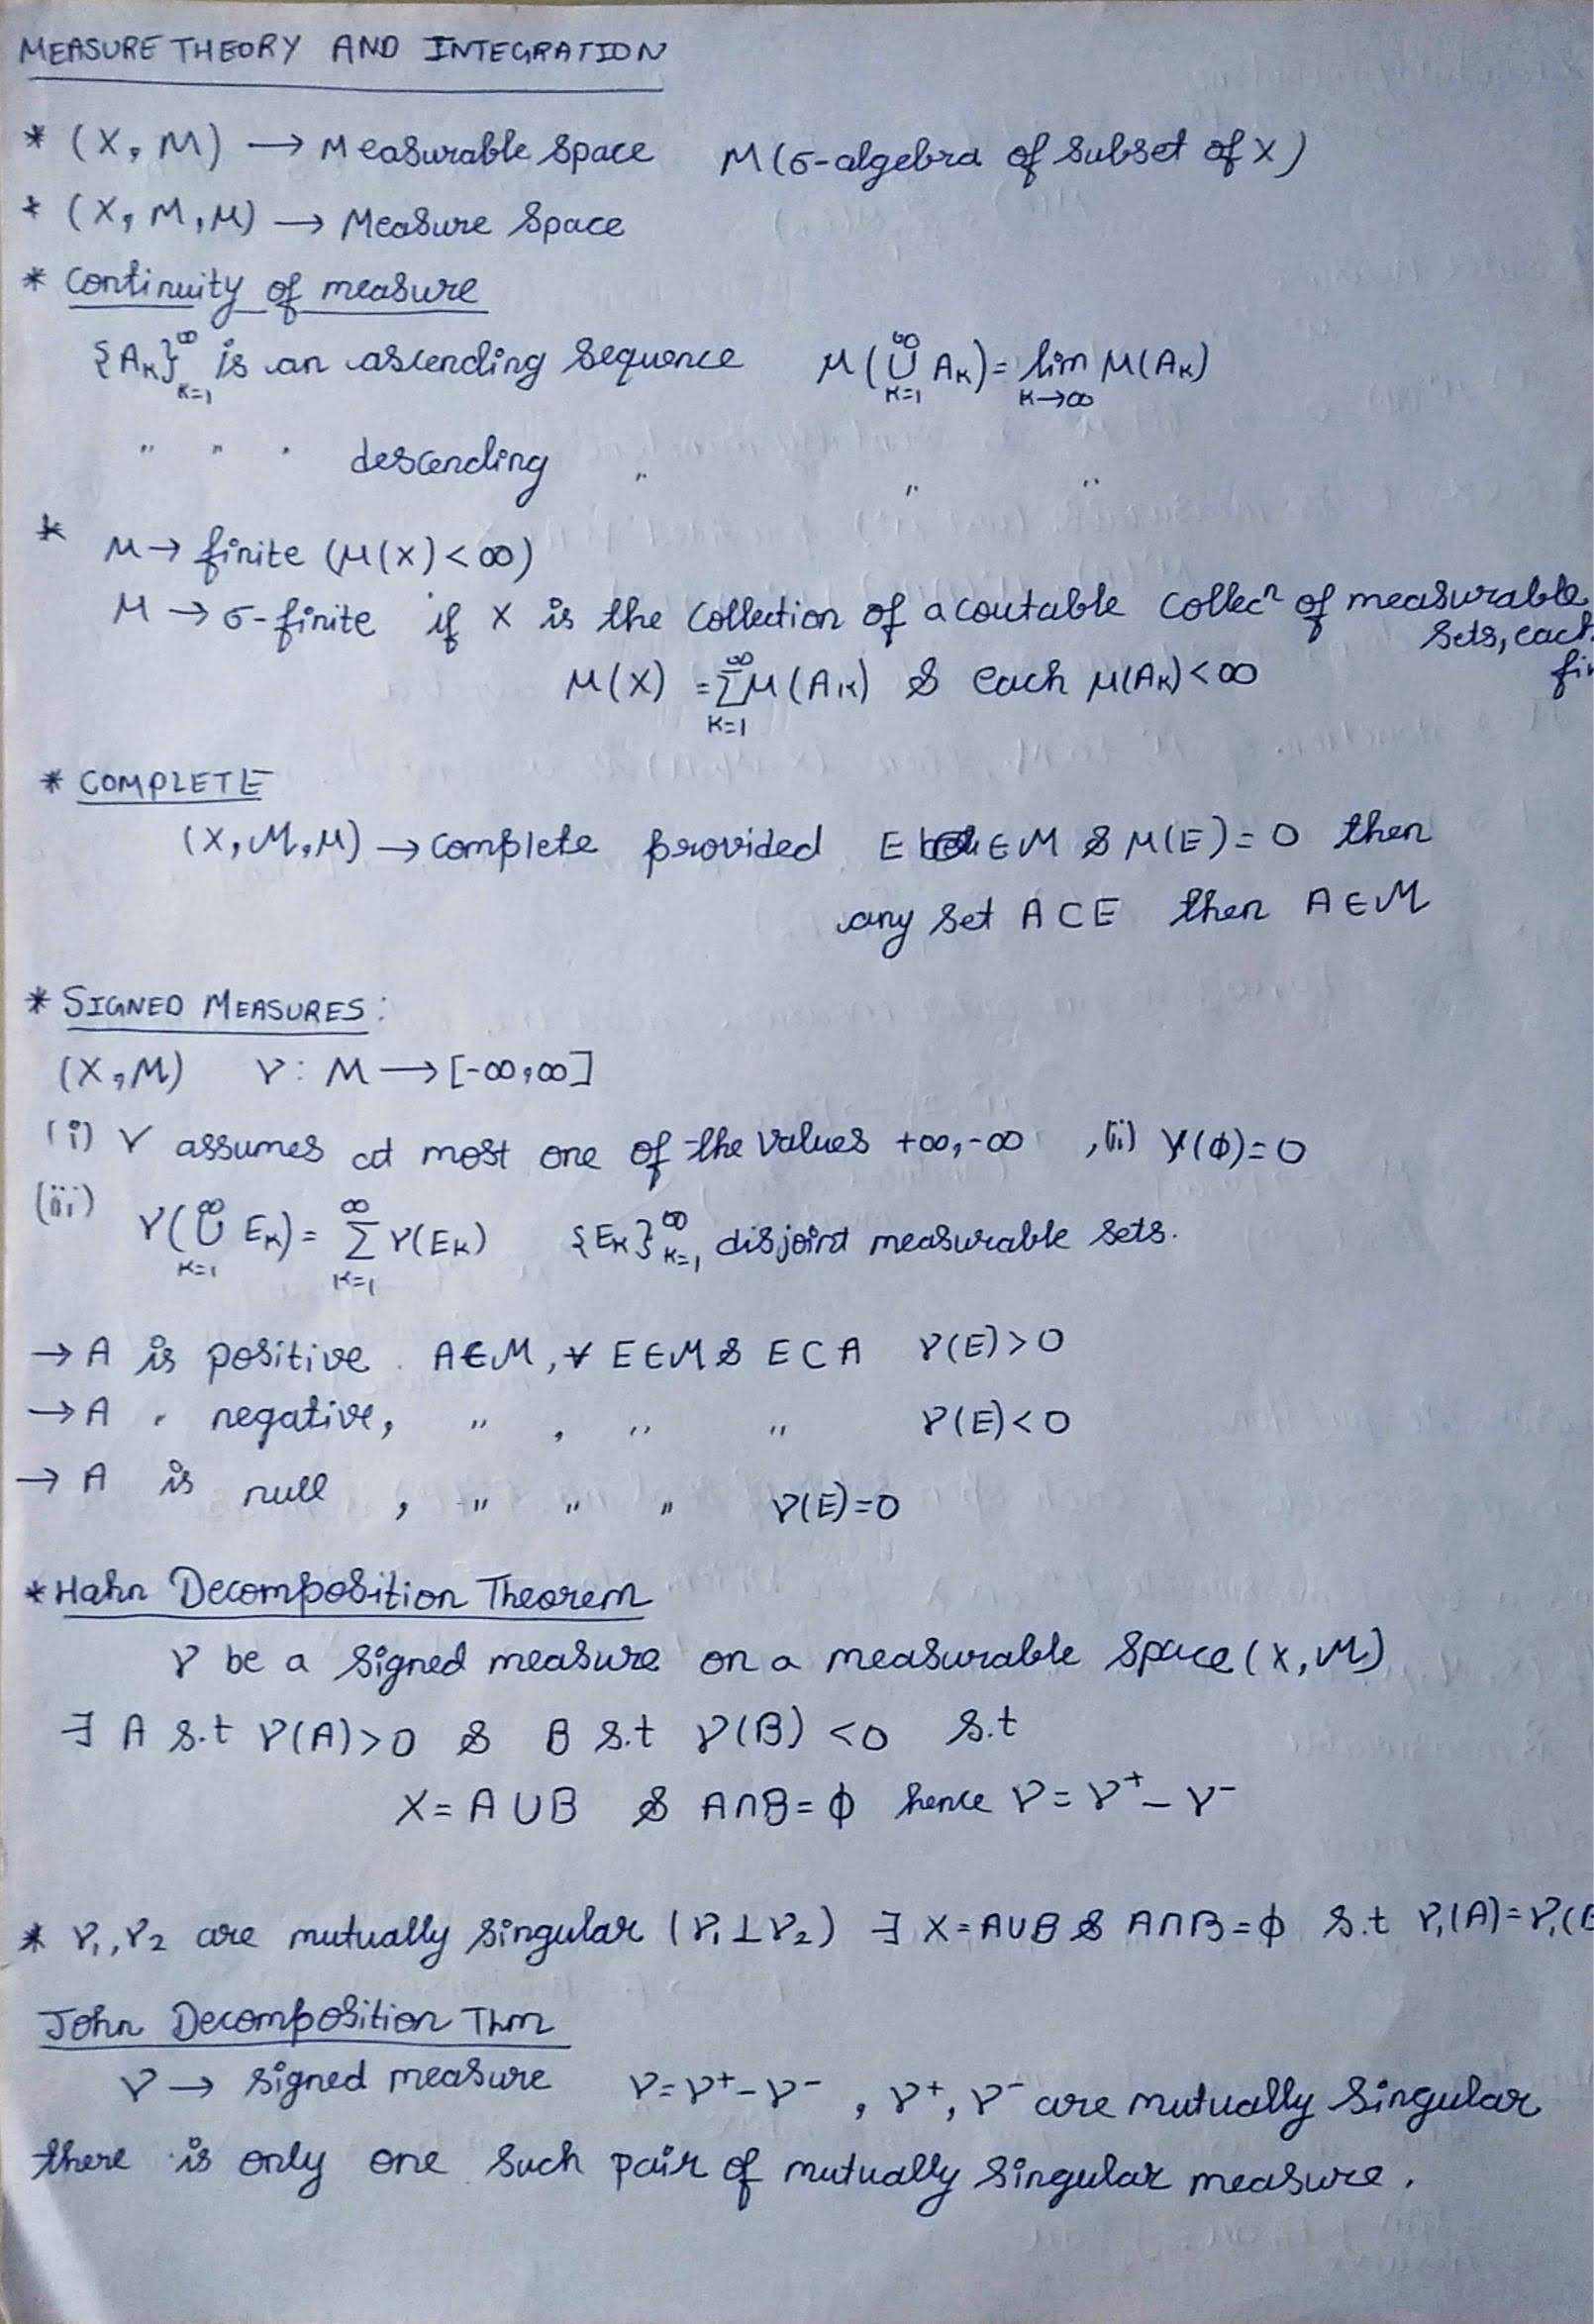 MEASURE THEORY AND INTEGRATION
* (X, M) → Measurable Space M (σ-algebra of subset of X)
* (X, M, μ) → Measure Space
* Continuity of measure
{A_k}_{k=1}^∞ is an ascending sequence μ(∪_{k=1}^∞ A_k) = lim_{k→∞} μ(A_k)
" " " descending " " "
* μ → finite (μ(X) < ∞)
μ → σ-finite if X is the collection of a coutable collecⁿ of measurable
sets, each
μ(X) = Σ_{k=1}^∞ μ(A_k) & each μ(A_k) < ∞
* COMPLETE
(X, M, μ) → complete provided E ∈ M & μ(E) = 0 then
any set A ⊂ E then A ∈ M
* SIGNED MEASURES:
(X, M) γ: M → [-∞, ∞]
(i) γ assumes at most one of the values +∞, -∞ , (ii) γ(ϕ) = 0
(iii) γ(∪_{k=1}^∞ E_k) = Σ_{k=1}^∞ γ(E_k) {E_k}_{k=1}^∞ disjoint measurable sets.
→ A is positive. A ∈ M, ∀ E ∈ M & E ⊂ A γ(E) > 0
→ A " negative, " , " " γ(E) < 0
→ A is null , " " " γ(E) = 0
* Hahn Decomposition Theorem
γ be a signed measure on a measurable space (X, M)
∃ A s.t γ(A) > 0 & B s.t γ(B) < 0 s.t
X = A ∪ B & A ∩ B = ϕ hence γ = γ⁺ - γ⁻
* γ₁, γ₂ are mutually singular (γ₁ ⊥ γ₂) ∃ X = A ∪ B & A ∩ B = ϕ s.t γ₁(A) = γ₁(B
John Decomposition Thm
γ → signed measure γ = γ⁺ - γ⁻ , γ⁺, γ⁻ are mutually singular
there is only one such pair of mutually singular measure.